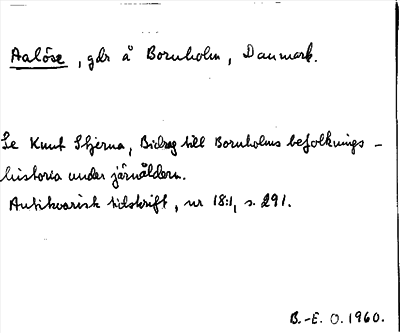 Aalöse, gdr å Bornholm, Danmark.
Se Knut Stjerna, Bidrag till Bornholms befolknings -
historia under järnåldern.
Antikvarisk tidskrift, nr 18:1, s. 291.
B.-E. O. 1960.